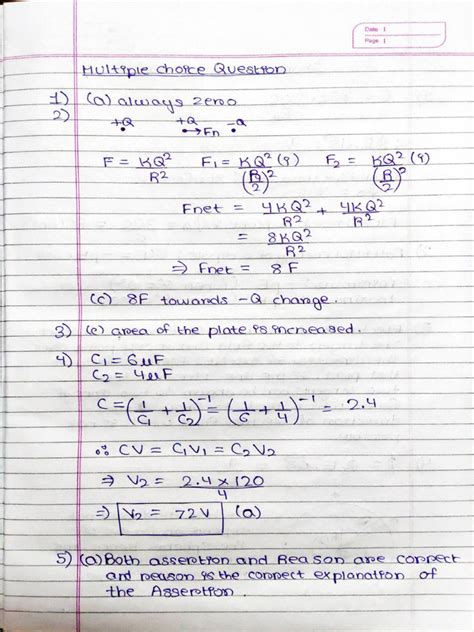 Date :
Page :
Multiple choice Question
1) (a) always zero
2) +Q +Q -Q
Fn
F = KQ²/R² F₁ = KQ²(9)/(R/2)² F₂ = KQ²(9)/(R/2)²
Fnet = 4KQ²/R² + 4KQ²/R²
= 8KQ²/R²
⇒ Fnet = 8F
(c) 8F towards -Q charge.
3) (c) area of the plate is increased.
4) C₁ = 6μF
C₂ = 4μF
C = (1/C₁ + 1/C₂)⁻¹ = (1/6 + 1/4)⁻¹ = 2.4
∴ CV = C₁V₁ = C₂V₂
⇒ V₂ = 2.4 × 120/4
⇒ V₂ = 72V (a)
5) (a) Both asserotion and Reason are correct
and reason is the correct explanation of
the Asserotion.